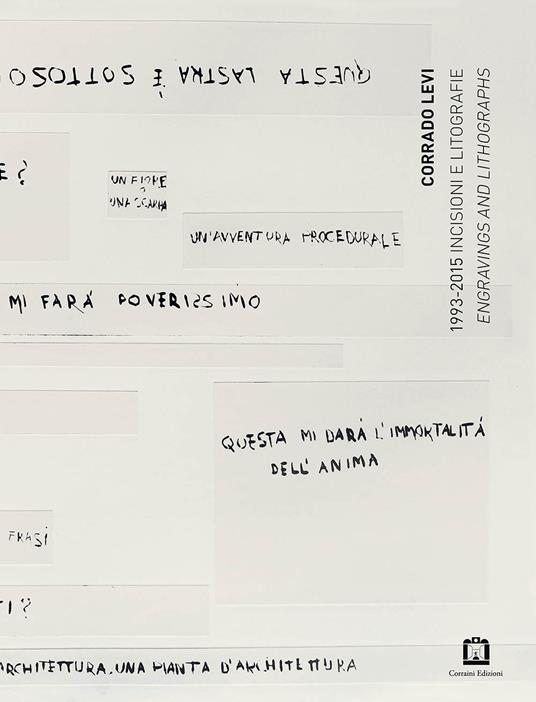 QUESTA LASTRA È SOTTOSO
E?
UN FIORE
UNA SCARPA
UN'AVVENTURA PROCEDURALE
MI FARÁ POVERISSIMO
QUESTA MI DARÁ L'IMMORTALITÁ
DELL'ANIMA
FRASI
I?
ARCHITETTURA, UNA PIANTA D'ARCHITETTURA
CORRADO LEVI
1993-2015 INCISIONI E LITOGRAFIE
ENGRAVINGS AND LITHOGRAPHS
Corraini Edizioni